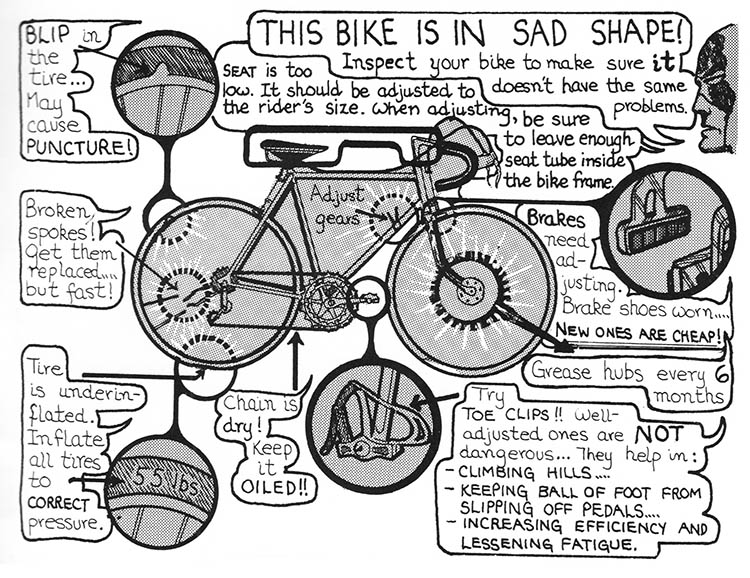 THIS BIKE IS IN SAD SHAPE!
Inspect your bike to make sure it
doesn't have the same
problems.
BLIP in
the
tire...
May
cause
PUNCTURE!
SEAT IS too
low. It should be adjusted to
the rider's size. When adjusting,
be sure
to leave enough
seat tube inside
the bike frame.
Adjust
gears
Broken
spokes!
Get them
replaced....
but fast!
Brakes
need
ad-
justing.
Brake shoes worn....
NEW ONES ARE CHEAP!
Grease hubs every 6
months
Tire
is underin-
flated.
Inflate
all tires
to
CORRECT
pressure.
55 lbs
Chain is
dry!
Keep
it
OILED!!
Try
TOE CLIPS!! Well-
adjusted ones are NOT
dangerous... They help in:
- CLIMBING HILLS....
- KEEPING BALL OF FOOT FROM
SLIPPING OFF PEDALS....
- INCREASING EFFICIENCY AND
LESSENING FATIGUE.